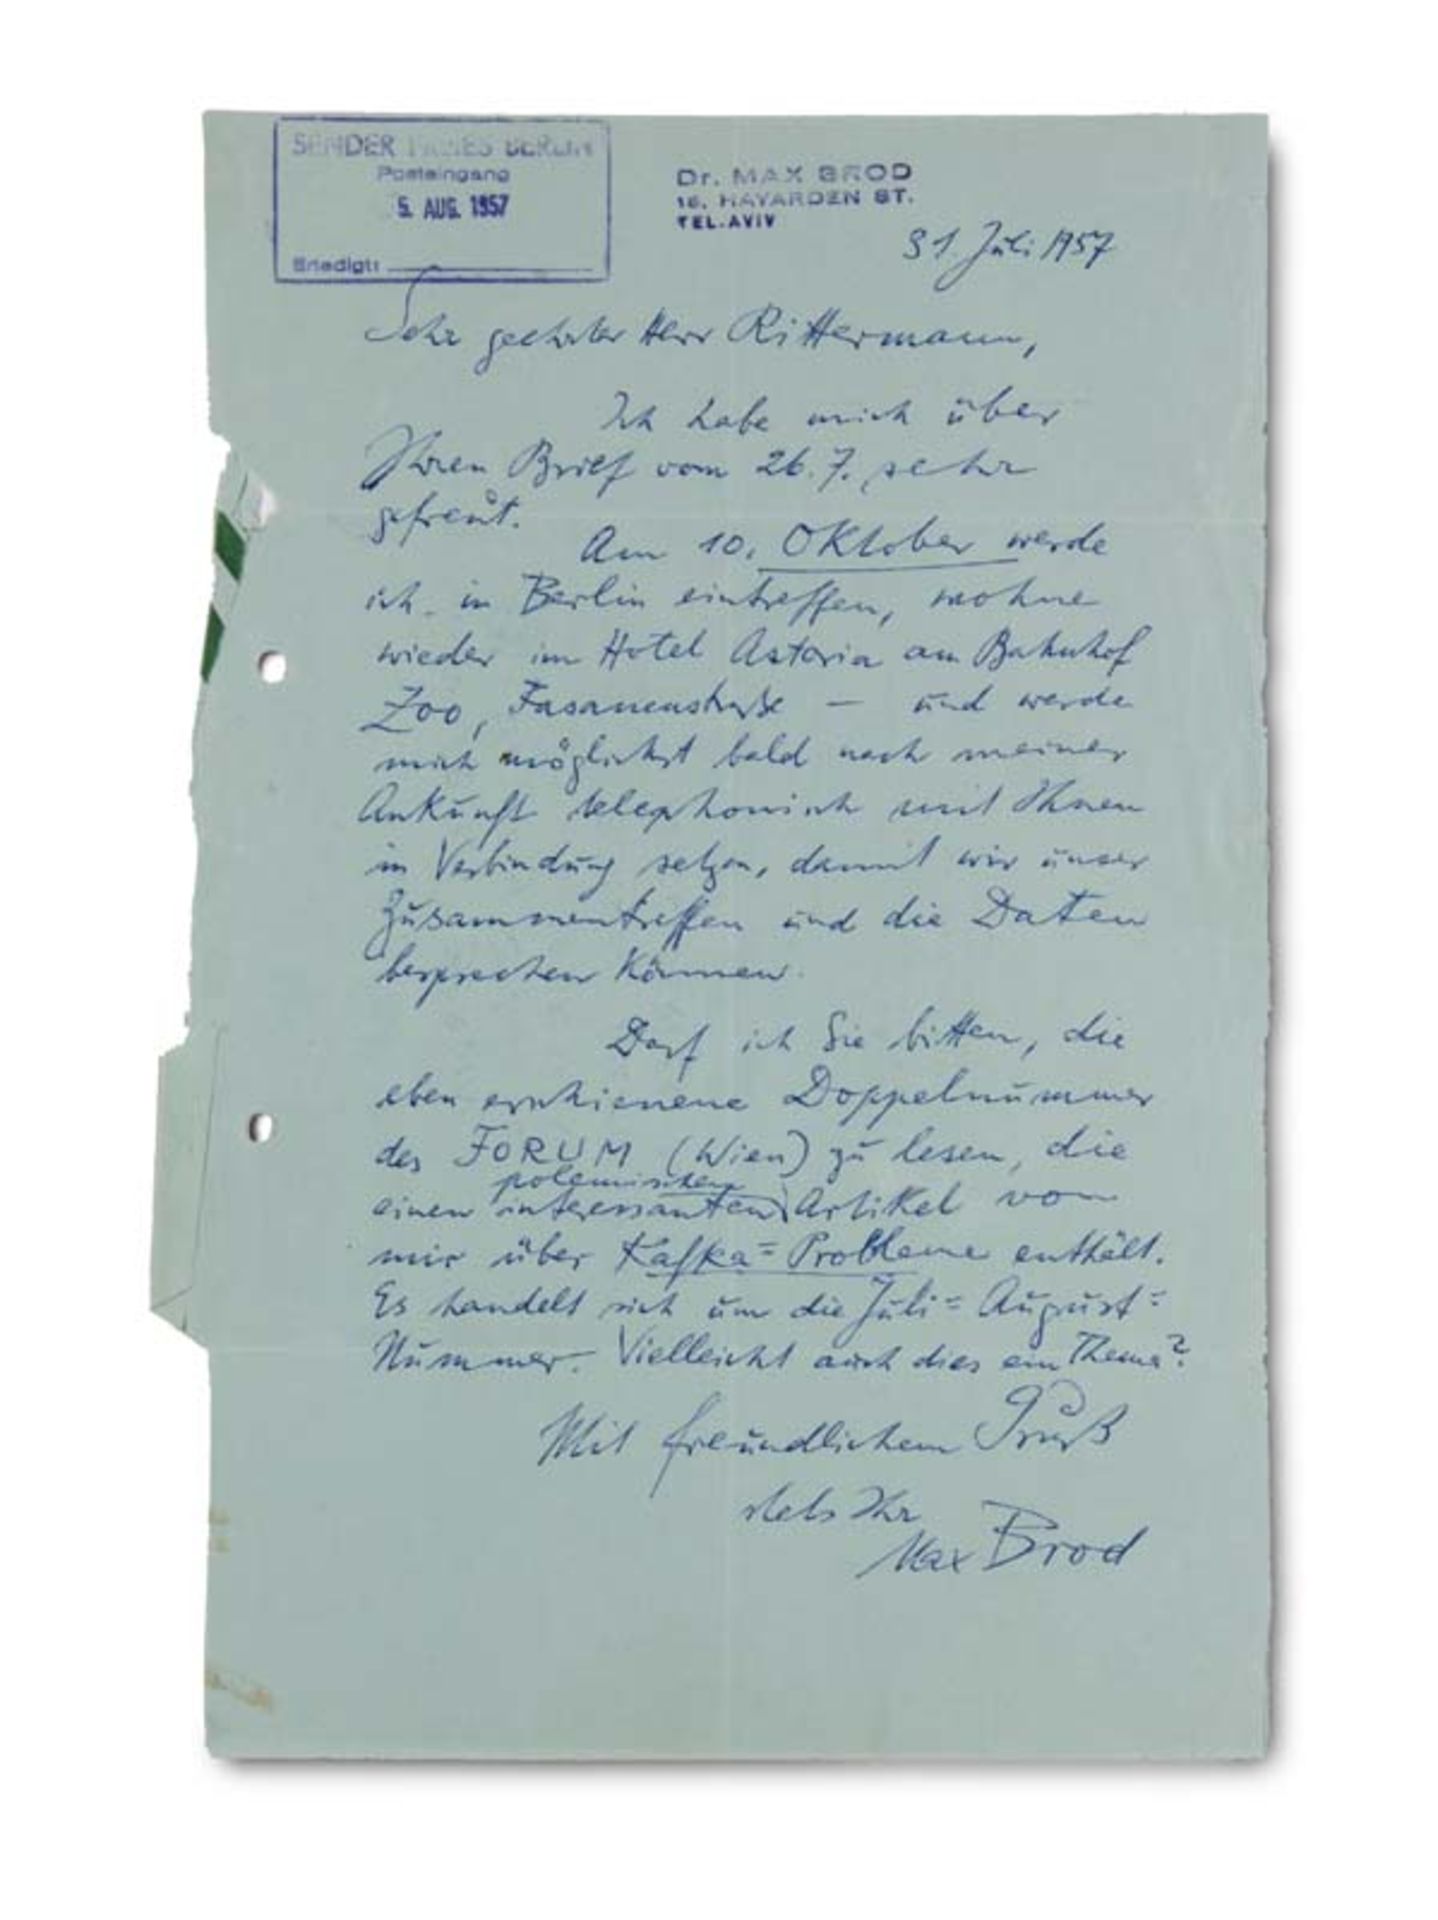 SENDER FREIES BERLIN
Posteingang
5. AUG. 1957
Erledigt:
Dr. MAX BROD
16. HAYARDEN ST.
TEL.AVIV
31 Juli 1957
Sehr geehrter Herr Rittermann,
Ich habe mich über
Ihren Brief vom 26.7. sehr
gefreut.
Am 10. Oktober werde
ich in Berlin eintreffen, wohne
wieder im Hotel Astoria am Bahnhof
Zoo, Fasanenstraße – und werde
mich möglichst bald nach meiner
Ankunft telephonisch mit Ihnen
in Verbindung setzen, damit wir unser
Zusammentreffen und die Daten
besprechen können.
Darf ich Sie bitten, die
eben erschienene Doppelnummer
des FORUM (Wien) zu lesen, die
polemischen
einen interessanten Artikel von
mir über Kafka=Probleme enthält.
Es handelt sich um die Juli=August=
Nummer. Vielleicht auch dies ein Thema?
Mit freundlichem Gruß
stets Ihr
Max Brod